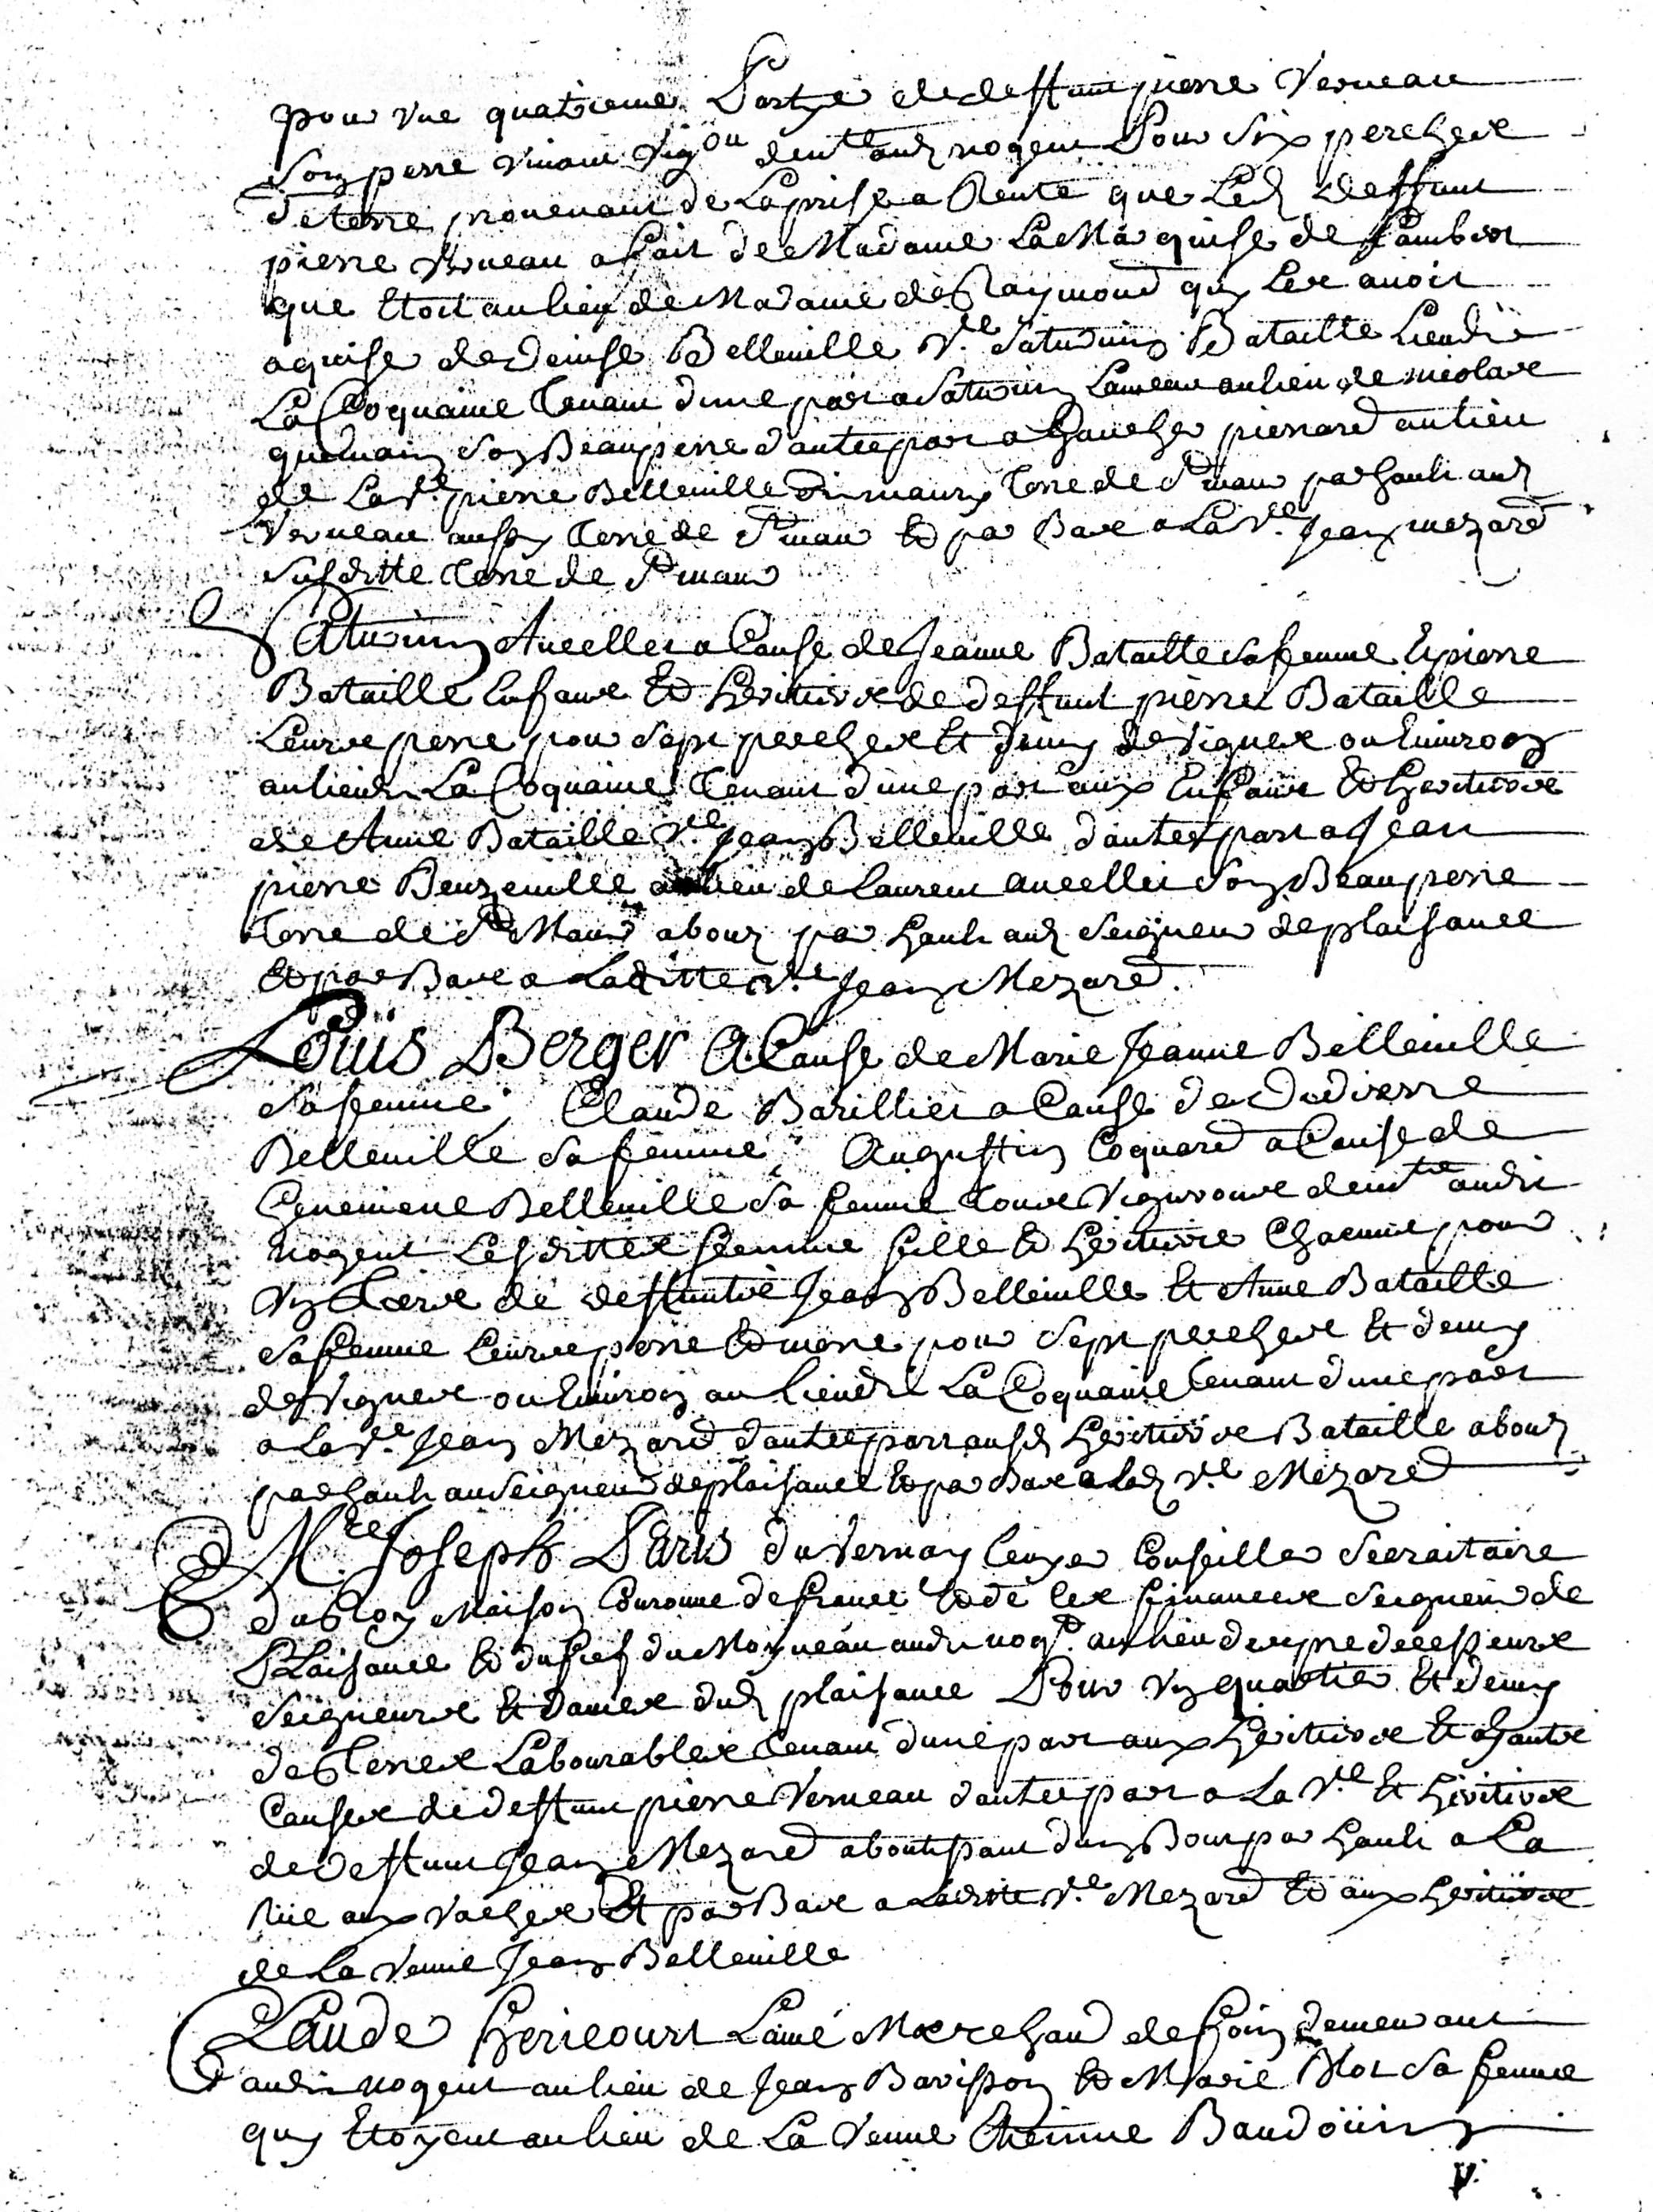 pour une quatrieme Partye de deffunt pierre Verneau
Son pere vivant Vig.on dem.t aud nogent Pour Six perches
de terre provenant de La prise a Rente que Led deffunt
pierre Verneau a fait de Madame La Marquise de Lambert
que Etoit au lieu de Madame de Raymond quy Les avoit
aquise de Denise Belleville V.e Saturnin Bataille Lieudit
La Coquaine tenant d'une part a Saturnin au lieu de nicolas
Son Beaupere d'autre part a Gaucher pienard au lieu
de La V.e pierre Belleville terre de S.t maur par hault aud
Verneau aussy terre de S.t maur Et par Bas a La V.e Jean mezard
Susditte terre de S.t maur
Saturnin Ancellet a Cause de Jeanne Bataille sa femme Et pierre
Bataille Enfans Et heritiers de deffunt pierre Bataille
Leurs pere pour Sept perches Et demy de Vignes ou Environ
au lieudit La Coquaine tenant d'une part aux Enfans Et heritiers
de Anne Bataille V.e Jean Belleville d'autre part a Jean
pierre Beuzeville au lieu de Laurent ancellet Son Beaupere
terre de S.t Maur about par hault aud Seigneur de plaisance
Et par Bas a Laditte V.e Jean Mezard.
Loüis Berger A Cause de Marie Jeanne Belleville
Sa femme, Claude Barillier a Cause de
Belleville Sa femme, Augustin Coquard a Cause de
Genevieve Belleville Sa femme tous Vignerons dem.ts audit
nogent Lesdittes femme fille Et heritiere Chacune pour
Un tiers de deffuncts Jean Belleville Et Anne Bataille
Sa femme Leurs pere Et mere pour Sept perches Et demy
de Vignes ou Environ au Lieudit La Coquaine tenant d'une part
a La V.e Jean Mezard d'autre part ausd heritiers Bataille about
par hault au Seigneur de plaisance Et par Bas a Lad V.e Mezard
M.re Joseph Paris du Vernay Ecuyer Conseiller Secraitaire
du Roy Maison Couronne de france Et de Ses finances Seigneur de
Plaisance Et du fief du Moyneau audit nog.t au lieu de
Seigneurs Et dames dud plaisance Pour Un quartier Et demy
de terres Labourables tenant d'une part aux heritiers Et ayants
Causes de deffunt pierre Verneau d'autre part a La V.e Et heritiers
de deffunt Jean Mezard aboutissant d'un Bout par hault a La
Rue aux Vaches Et par Bas a Laditte V.e Mezard Et aux heritiers
de La Veuve Jean Belleville
Claude Hericourt L'aîné Marchand de foin demeurant
audit nogent au lieu de Jean Barisson Et Marie Sa femme
quy Etoyent au lieu de La Veuve Baudoüin